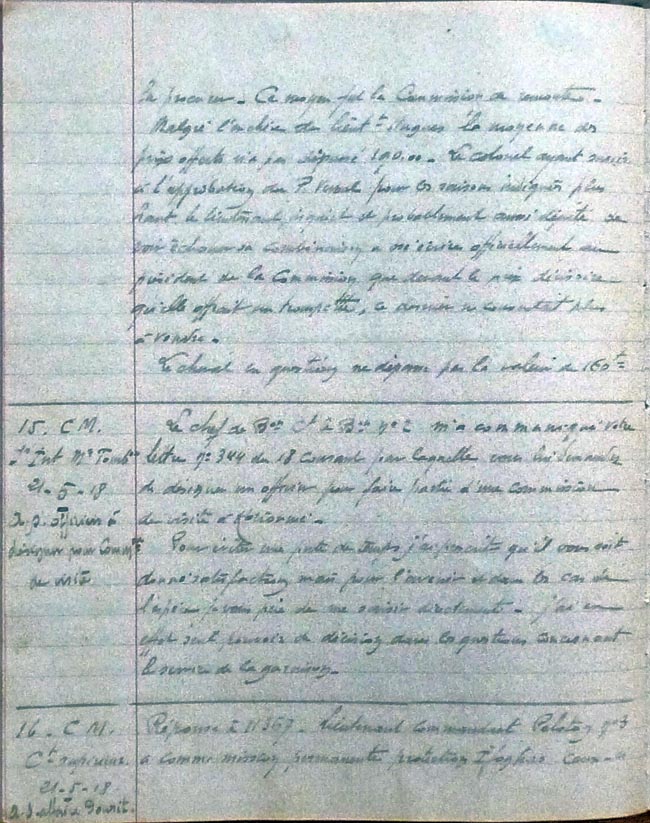 le procurer - Ce moyen fut la Commission de remonte -
Malgré l'enchère du lieut.t Hugues la moyenne des
prix offerts n'a pas dépassé 190.00 - Le colonel ayant
à l'approbation du P. Verbal pour les raisons indiquées plus
haut le lieutenant, et probablement aussi dépité de
voir échouer sa combinaison a officiellement au
président de la Commission que devant le prix dérisoire
qu'elle offrait au trompette, ce dernier ne consentait plus
à vendre -
Le cheval en question ne dépasse pas la valeur de 160
15. C M.
Int M.re
21-5-18
a.s. officier à
désigner pour Comm.
de visite
Le chef de B.on C.t le B.on n° 2 m'a communiqué votre
lettre n° 344 du 18 courant par laquelle vous lui demandez
de désigner un officier pour faire partie d'une commission
de visite d'
Pour éviter une perte de temps, j'ai prescrit qu'il vous soit
donné satisfaction mais pour l'avenir et dans les cas de
l'espèce je vous prie de me saisir directement - j'ai en
effet seul pouvoir de décision dans les questions concernant
le service de la garnison -
16. C M.
C.t supérieur
21-5-18
a.s.
Réponse à 11357 - Lieutenant commandant Peloton n° 3
a comme mission permanente protection